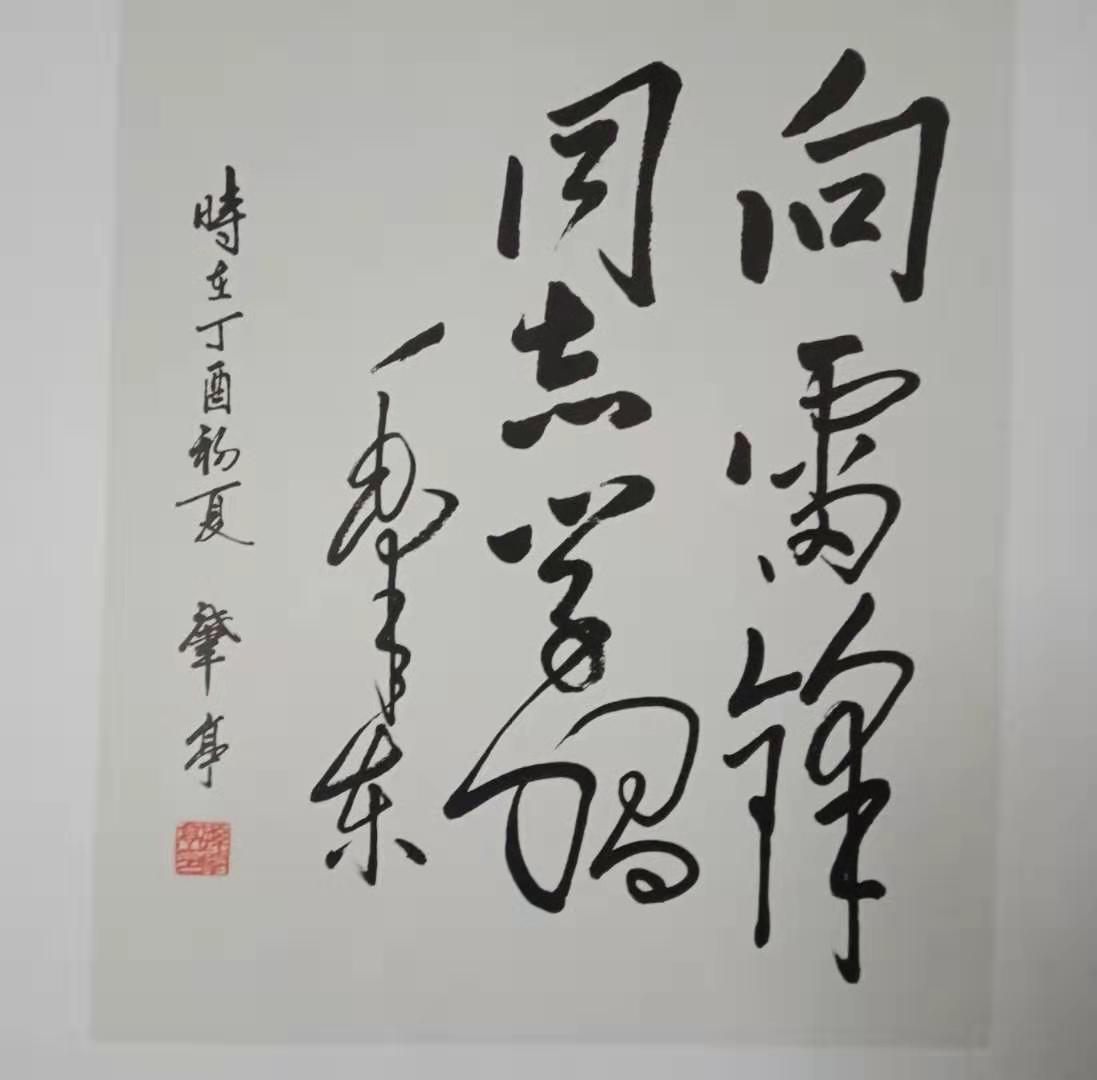 向雷锋
同志学習
毛泽东
時在丁酉初夏 肇亭